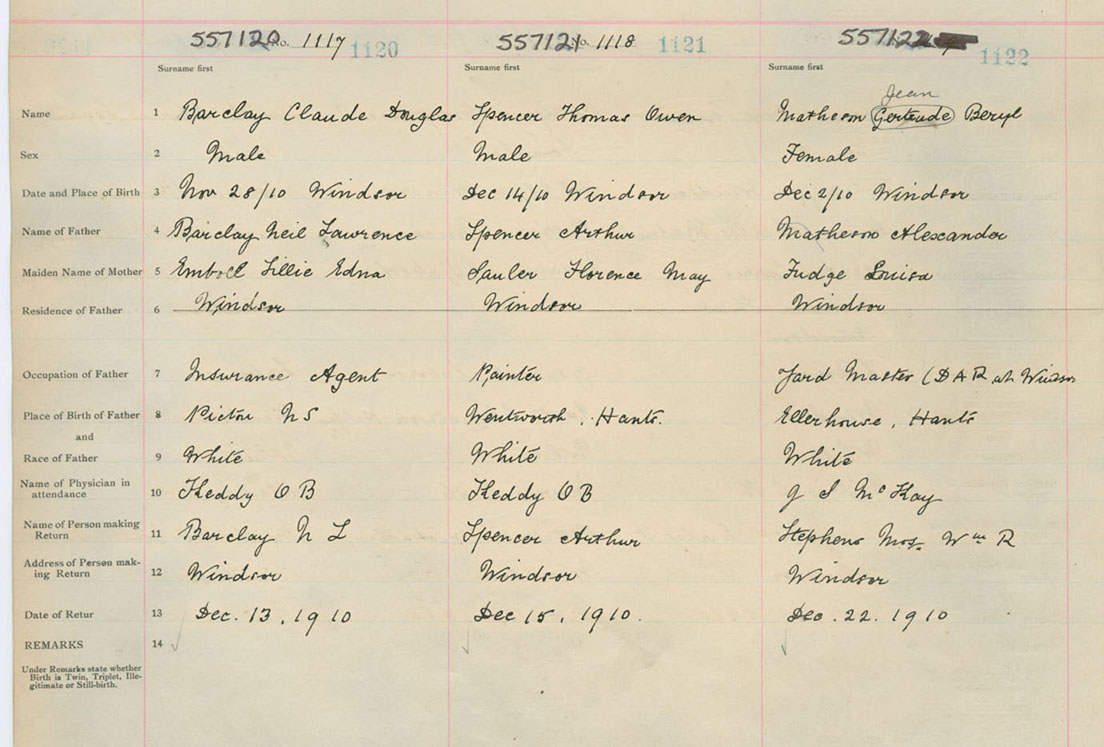 557120 No. 1117 1120 557121 No. 1118 1121 557122 1122
Surname first Surname first Surname first
Jean
Name 1 Barclay Claude Douglas Spencer Thomas Owen Matheson Gertrude Beryl
Sex 2 Male Male Female
Date and Place of Birth 3 Nov 28/10 Windsor Dec 14/10 Windsor Dec 2/10 Windsor
Name of Father 4 Barclay Neil Lawrence Spencer Arthur Matheson Alexander
Maiden Name of Mother 5 Lillie Edna Florence May Fudge Louisa
Residence of Father 6 Windsor Windsor Windsor
Occupation of Father 7 Insurance Agent Painter Yard Master (DAR at Windsor
Place of Birth of Father 8 Pictou NS Wentworth, Hants. Ellerhouse, Hants
and
Race of Father 9 White White White
Name of Physician in
attendance 10 Keddy O B Keddy O B J McKay
Name of Person making
Return 11 Barclay N L Spencer Arthur Stephens Mrs. Wm R
Address of Person mak-
ing Return 12 Windsor Windsor Windsor
Date of Retur 13 Dec. 13, 1910 Dec 15, 1910. Dec. 22. 1910
REMARKS 14
Under Remarks state whether
Birth is Twin, Triplet, Ille-
gitimate or Still-birth.